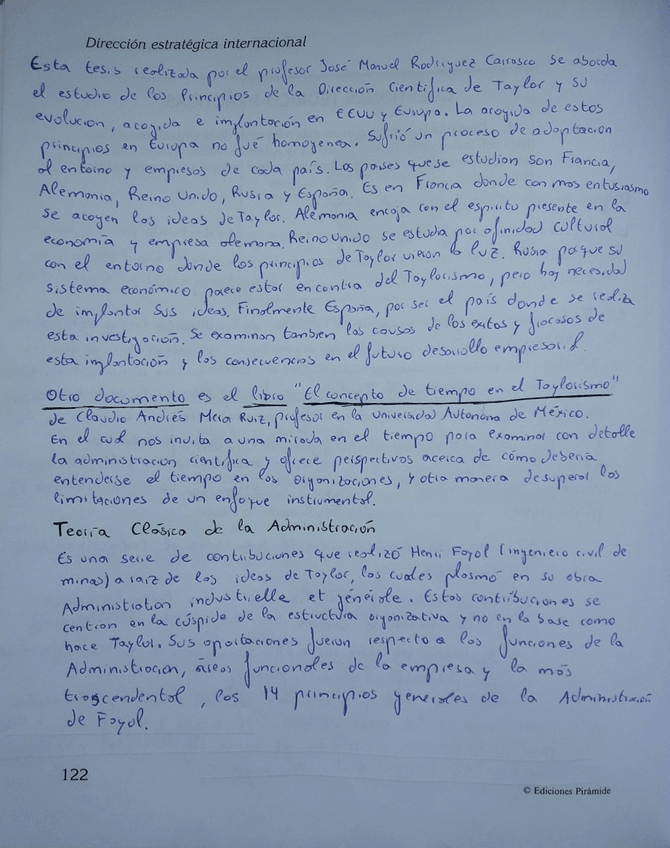 Dirección estratégica internacional
Esta tesis realizada por el profesor José Manuel Rodríguez Carrasco se aborda
el estudio de los Principios de la Dirección Científica de Taylor y su
evolución, acogida e implantación en EEUU y Europa. La acogida de estos
principios en Europa no fué homogenea. Sufrió un proceso de adaptación
al entorno y empresas de cada país. Los paises que se estudian son Francia,
Alemania, Reino Unido, Rusia y España. Es en Francia donde con mas entusiasmo
se acogen las ideas de Taylor. Alemania encaja con el espíritu presente en la
economía y empresa alemana. Reino Unido se estudia por afinidad cultural
con el entorno donde los principios de Taylor vieron la luz. Rusia porque su
sistema económico parece estar en contra del Taylorismo, pero hay necesidad
de implantar sus ideas. Finalmente España, por ser el país donde se realiza
esta investigación. Se examinan tambien las causas de los exitos y fracasos de
esta implantación y las consecuencias en el futuro desarrollo empresarial.
Otro documento es el libro "El concepto de tiempo en el Taylorismo"
de Claudio Andrés Mera Ruiz, profesor en la Universidad Autónoma de México.
En el cual nos invita a una mirada en el tiempo para examinar con detalle
la administración científica y ofrece perspectivas acerca de cómo debería
entenderse el tiempo en las Organizaciones, y otra manera de superar las
limitaciones de un enfoque instrumental.
Teoría Clásica de la Administración
Es una serie de contribuciones que realizó Henri Fayol (ingeniero civil de
minas) a raíz de las ideas de Taylor, las cuales plasmó en su obra
Administration industrielle et générale. Estas contribuciones se
centran en la cúspide de la estructura organizativa y no en la base como
hace Taylor. Sus aportaciones fueron respecto a las funciones de la
Administración, áreas funcionales de la empresa y la más
trascendental, los 14 principios generales de la Administración
de Fayol.
122
© Ediciones Pirámide